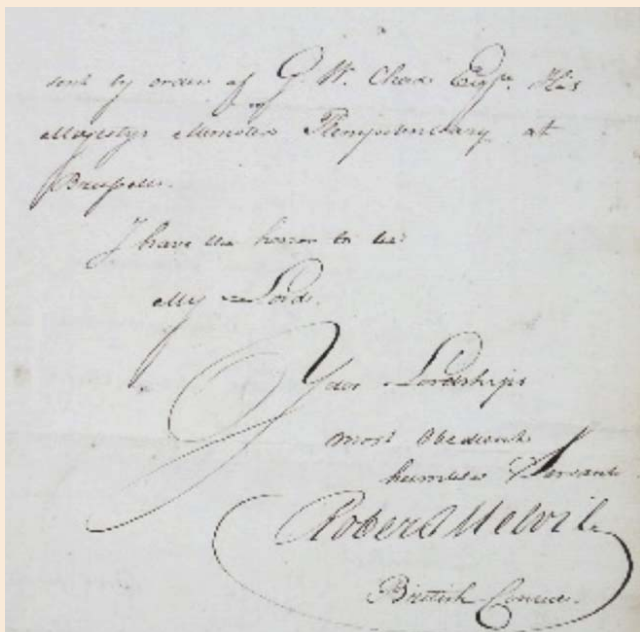 sent by order of G. W. Chad Esqre. His
Majestys Minister Plenipotentiary at
Brussells.
I have the honor to be
My Lord.
Your Lordships
most Obedient
humble Servant
Robert Melvil
British Consul.